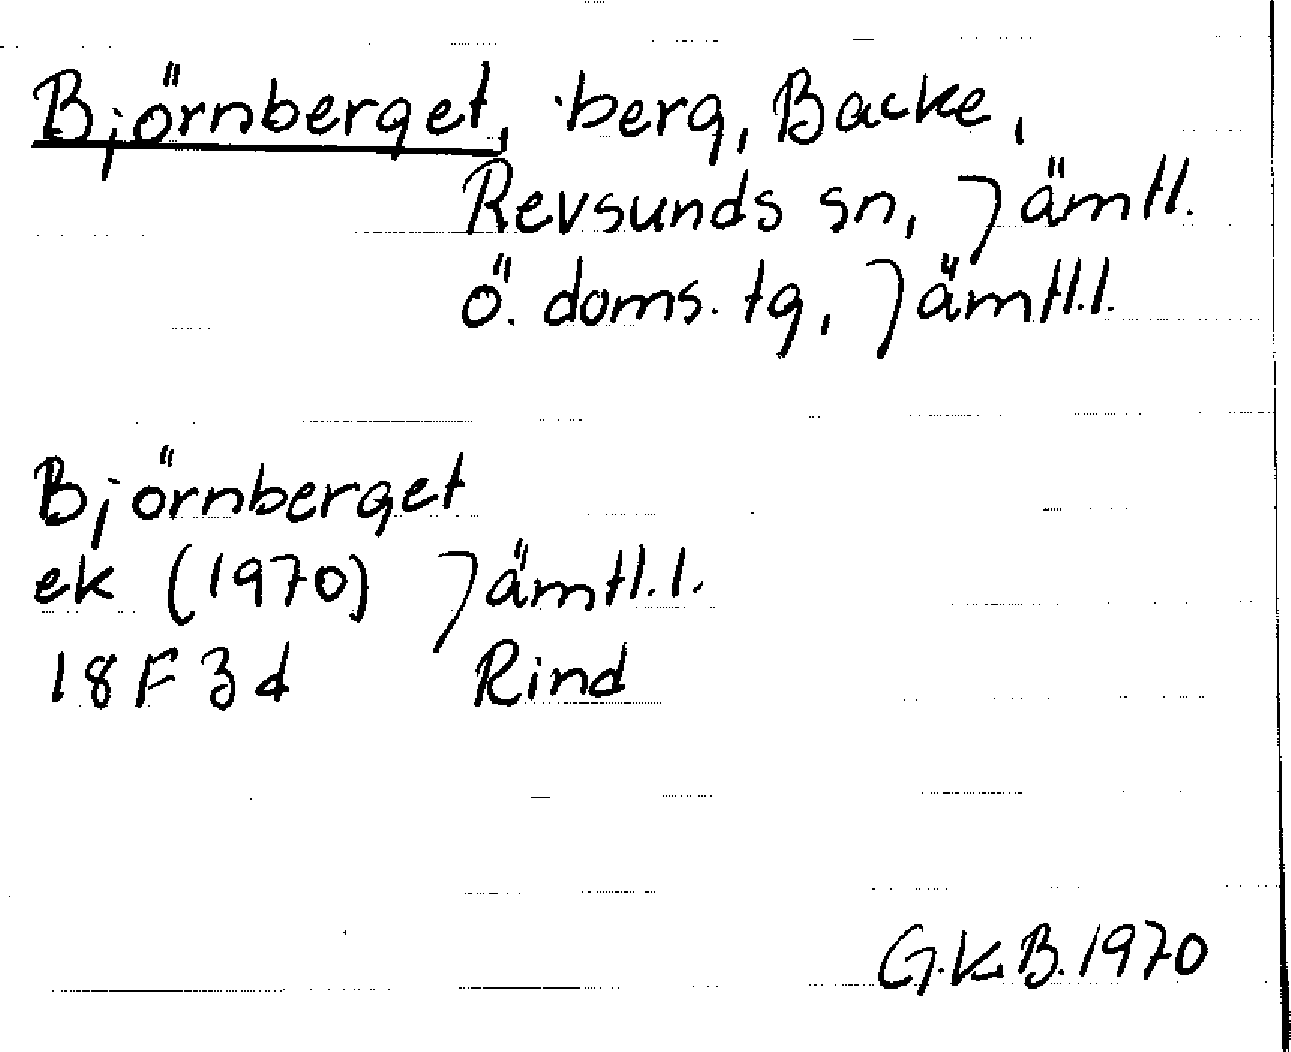 Björnberget, berg, Backe,
Revsunds sn, Jämtl.
ö. doms. tg, Jämtl.l.
Björnberget
ek (1970) Jämtl.l.
18F3d Rind
G.K.B. 1970